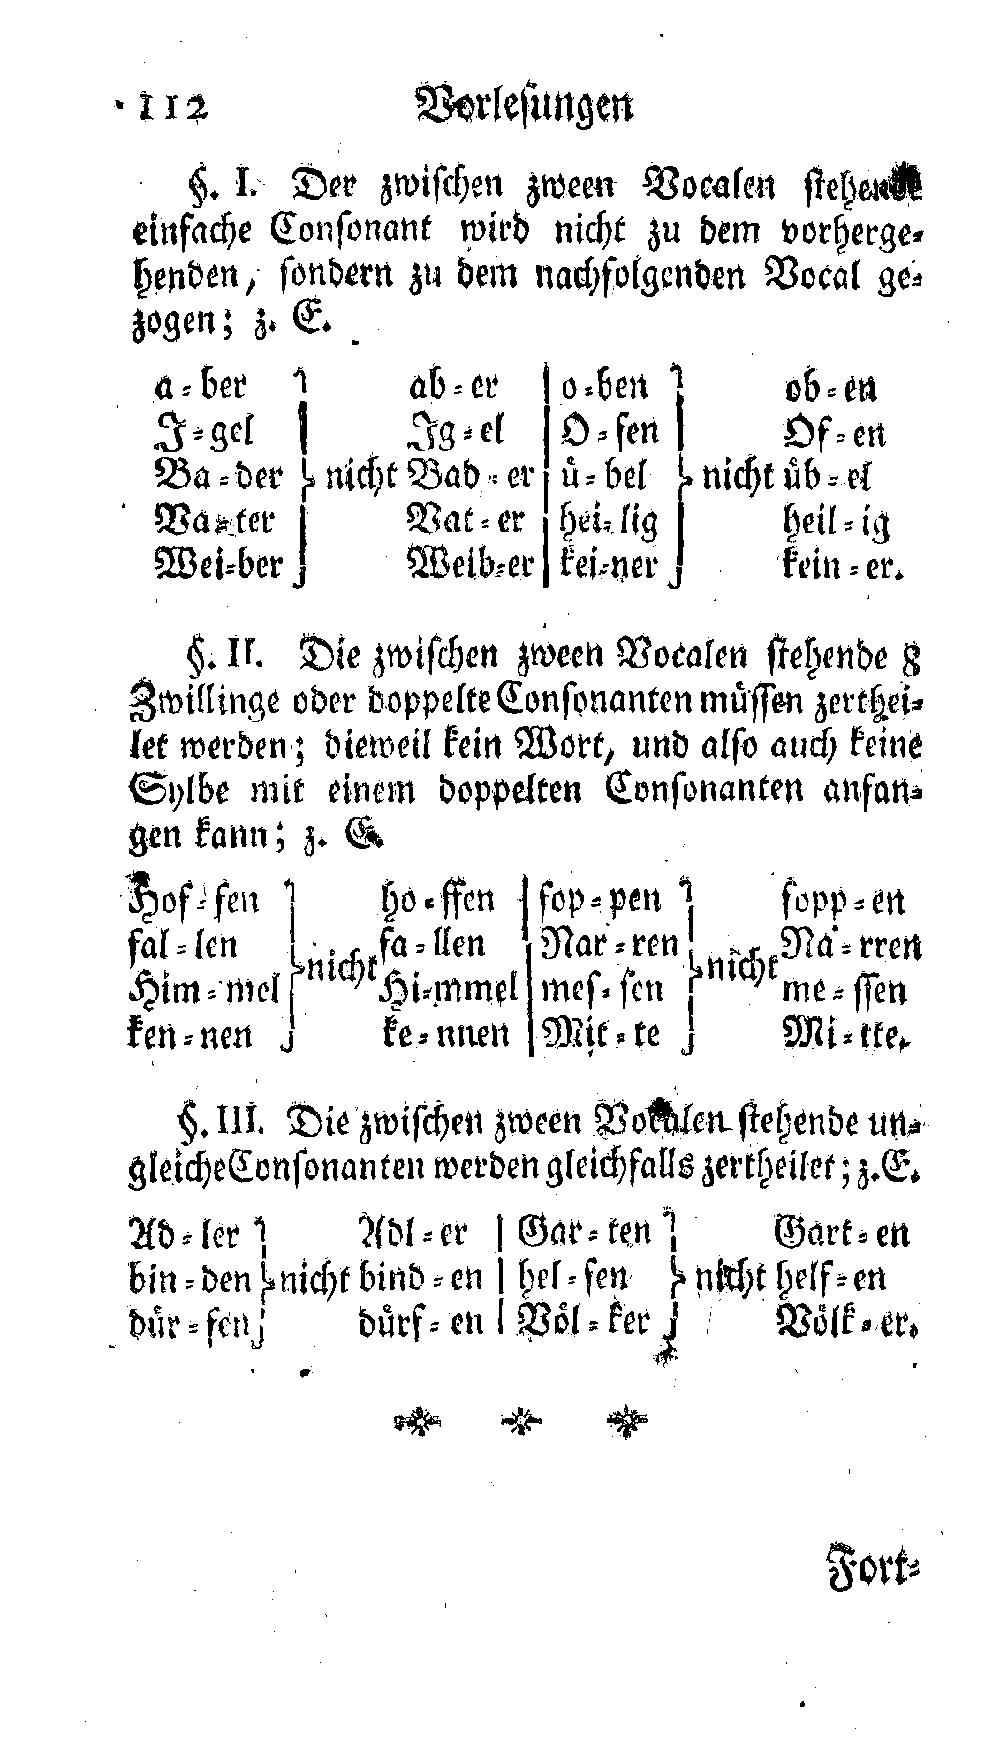 112 Vorlesungen
§. I. Der zwischen zween Vocalen stehende
einfache Consonant wird nicht zu dem vorherge-
henden, sondern zu dem nachfolgenden Vocal ge-
zogen; z. E.
a-ber ab-er o-ben ob-en
I-gel Ig-el O-fen Of-en
Ba-der nicht Bad-er uͤ-bel nicht uͤb-el
Va-ter Vat-er hei-lig heil-ig
Wei-ber Weib-er kei-ner kein-er.
§. II. Die zwischen zween Vocalen stehende 8
Zwillinge oder doppelte Consonanten muͤssen zerthei-
let werden; dieweil kein Wort, und also auch keine
Sylbe mit einem doppelten Consonanten anfan-
gen kann; z. E.
Hof-fen ho-ffen fop-pen fopp-en
fal-len fa-llen Nar-ren Na-rren
Him-mel nicht Hi-mmel mes-sen nicht me-ssen
ken-nen ke-nnen Mit-te Mi-tte.
§. III. Die zwischen zween Vokalen stehende un-
gleiche Consonanten werden gleichfalls zertheilet; z. E.
Ad-ler Adl-er Gar-ten Gart-en
bin-den nicht bind-en hel-fen nicht helf-en
duͤr-fen duͤrf-en Voͤl-ker Voͤlk-er.
Fort-